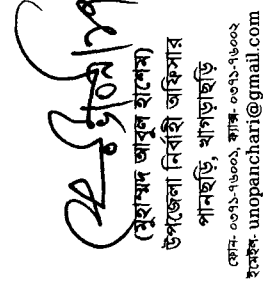 (মুহাম্মদ আবুল হাশেম)
উপজেলা নির্বাহী অফিসার
পানছড়ি, খাগড়াছড়ি
ফোন- ০৩৭১-৭৬০০১, ফ্যাক্স- ০৩৭১-৭৬০০২
ইমেইল- unopanchari@gmail.com